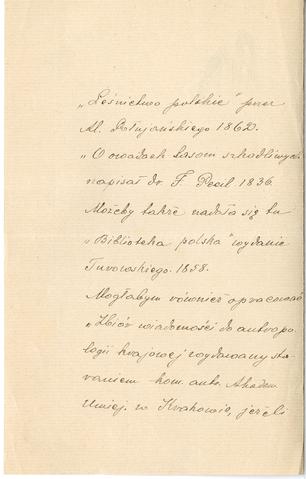 „Leśnictwo polskie” przez
Al. Połujańskiego 1862.
„O owadach lasom szkodliwych
napisał dr. F. Pecil 1836.
Możeby także nadała się tu
„Biblioteka polska” wydanie
Turowskiego. 1858.
Mogłabym również opracować
„Zbiór wiadomości do antropo-
logii krajowej wydawany sta-
raniem kom. antr. Akadem.
Umiej. w Krakowie, jeżeli